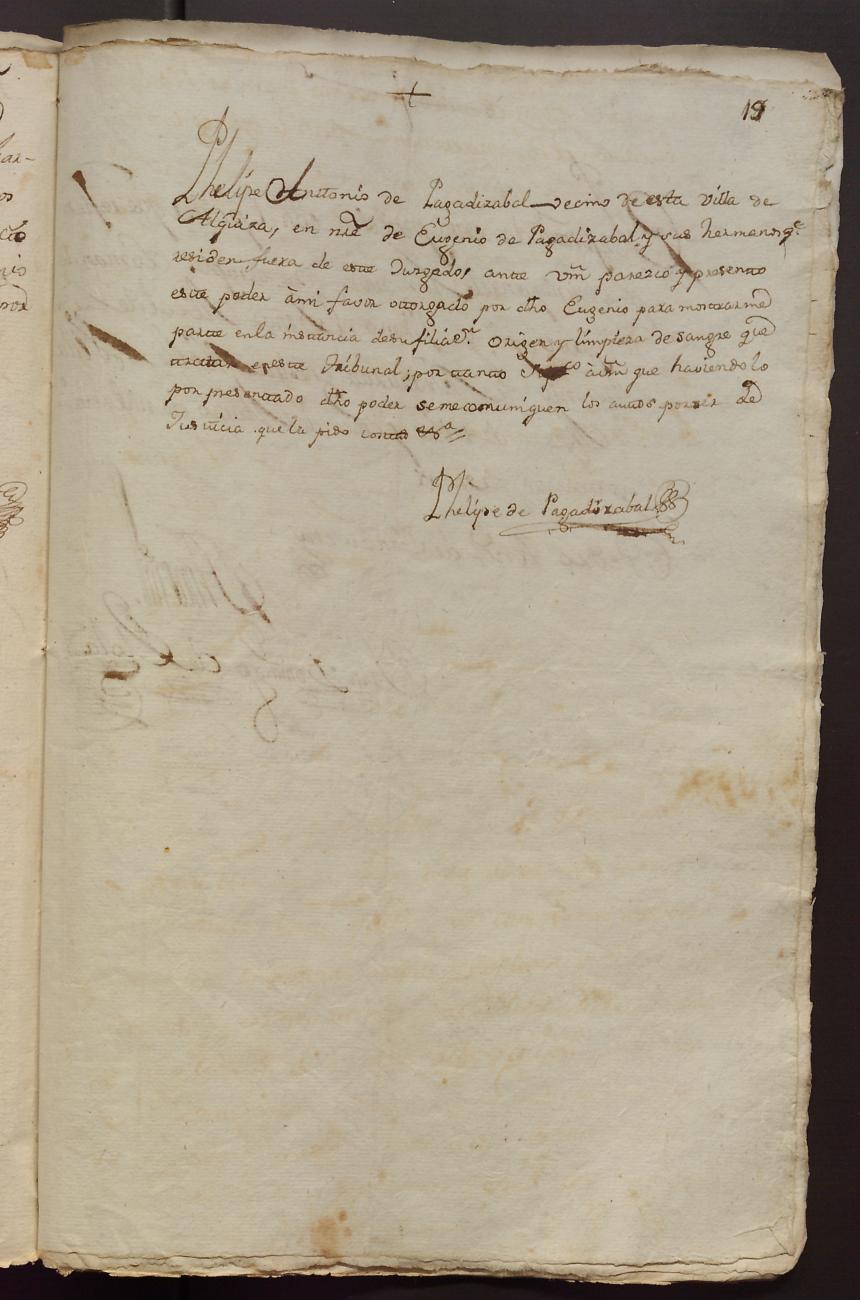 19
Phelipe Anttonio de Pagadizabal vecino de esta villa de
Algueza, en nrē de Eugenio de Pagadizabal y sus hermanos q.e
residen fuera de este Juzgado, ante vm̄ parezco y presento
este poder ā mi favor ottorgado por dho Eugenio para mostrarme
parte en la instancia de su filiaº.n origen y limpieza de sangre que
tratan en este Tribunal; por tanto Sup.co a vm̄ que haviendolo
por presentado dho poder se me comuniquen los autos por ser de
Justicia que la pido contas &.a
Phelipe de Pagadizabal